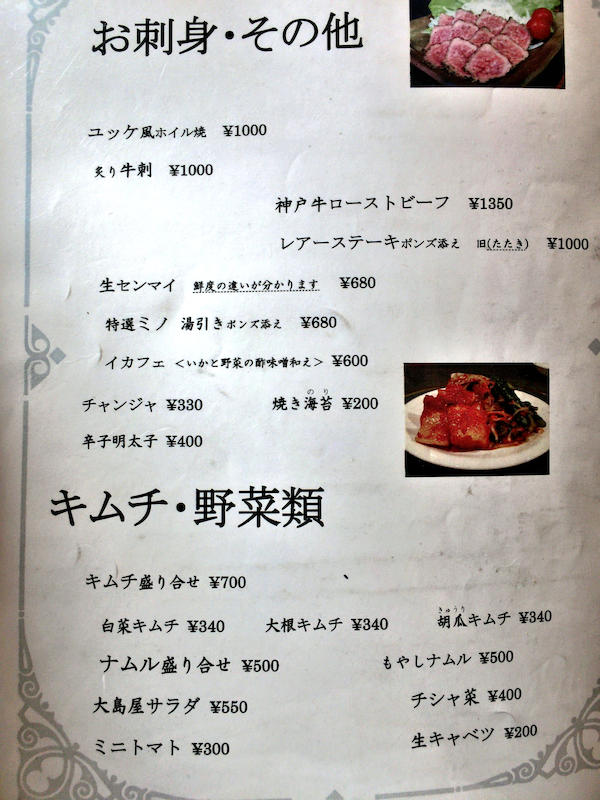 お刺身・その他
ユッケ風ホイル焼 ¥1000
炙り牛刺 ¥1000
神戸牛ローストビーフ ¥1350
レアーステーキポンズ添え 旧(たたき) ¥1000
生センマイ 鮮度の違いが分かります ¥680
特選ミノ 湯引きポンズ添え ¥680
イカフェ <いかと野菜の酢味噌和え> ¥600
のり
チャンジャ ¥330 焼き海苔 ¥200
辛子明太子 ¥400
キムチ・野菜類
キムチ盛り合せ ¥700
きゅうり
白菜キムチ ¥340 大根キムチ ¥340 胡瓜キムチ ¥340
ナムル盛り合せ ¥500 もやしナムル ¥500
大島屋サラダ ¥550 チシャ菜 ¥400
ミニトマト ¥300 生キャベツ ¥200